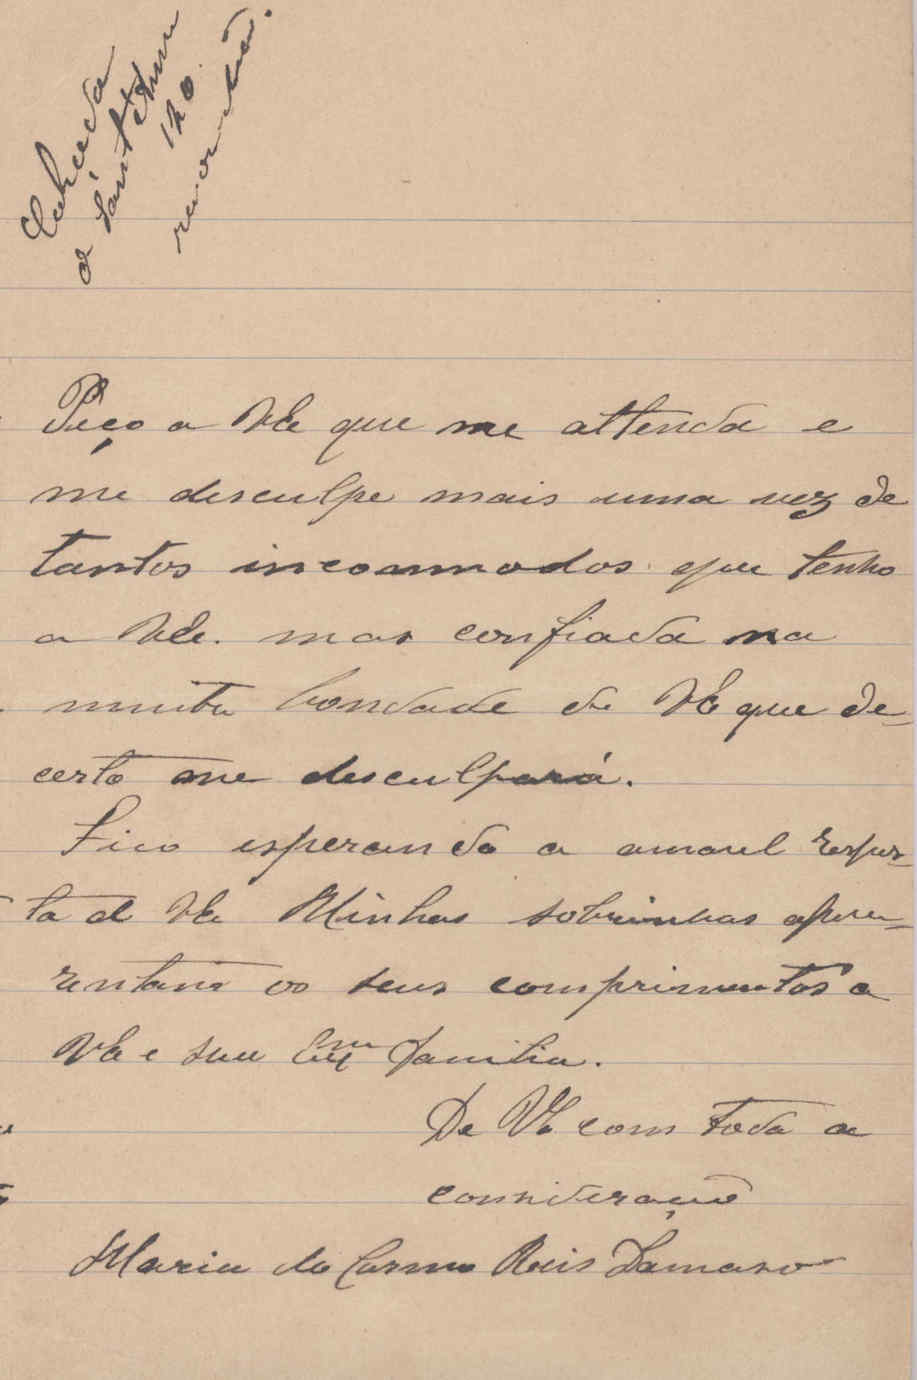 Calçada
de Sant'Anna
120
Peço a V.Ex. que me attenda e
me desculpe mais uma vez de
tantos incommodos que tenho
a V.Ex. mas confiada na
muita bondade de V.Ex. que de-
certo me desculpará.
Fico esperando a amavel respos-
ta de V.Ex. Minhas sobrinhas apre-
zentão os seus comprimentos a
V.Ex. e sua Exma familia.
De V.Ex. com toda a
consideração
Maria do Carmo Reis Damaso